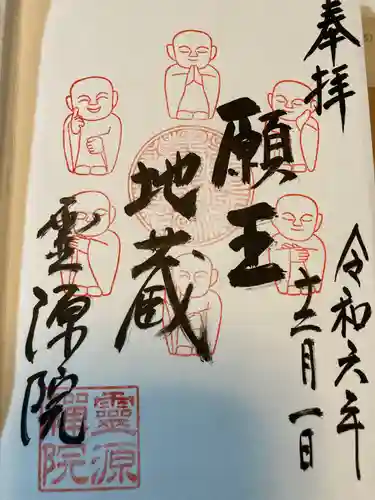 奉拝
令和六年
十二月一日
願王
地蔵
霊源院
靈源
禪院